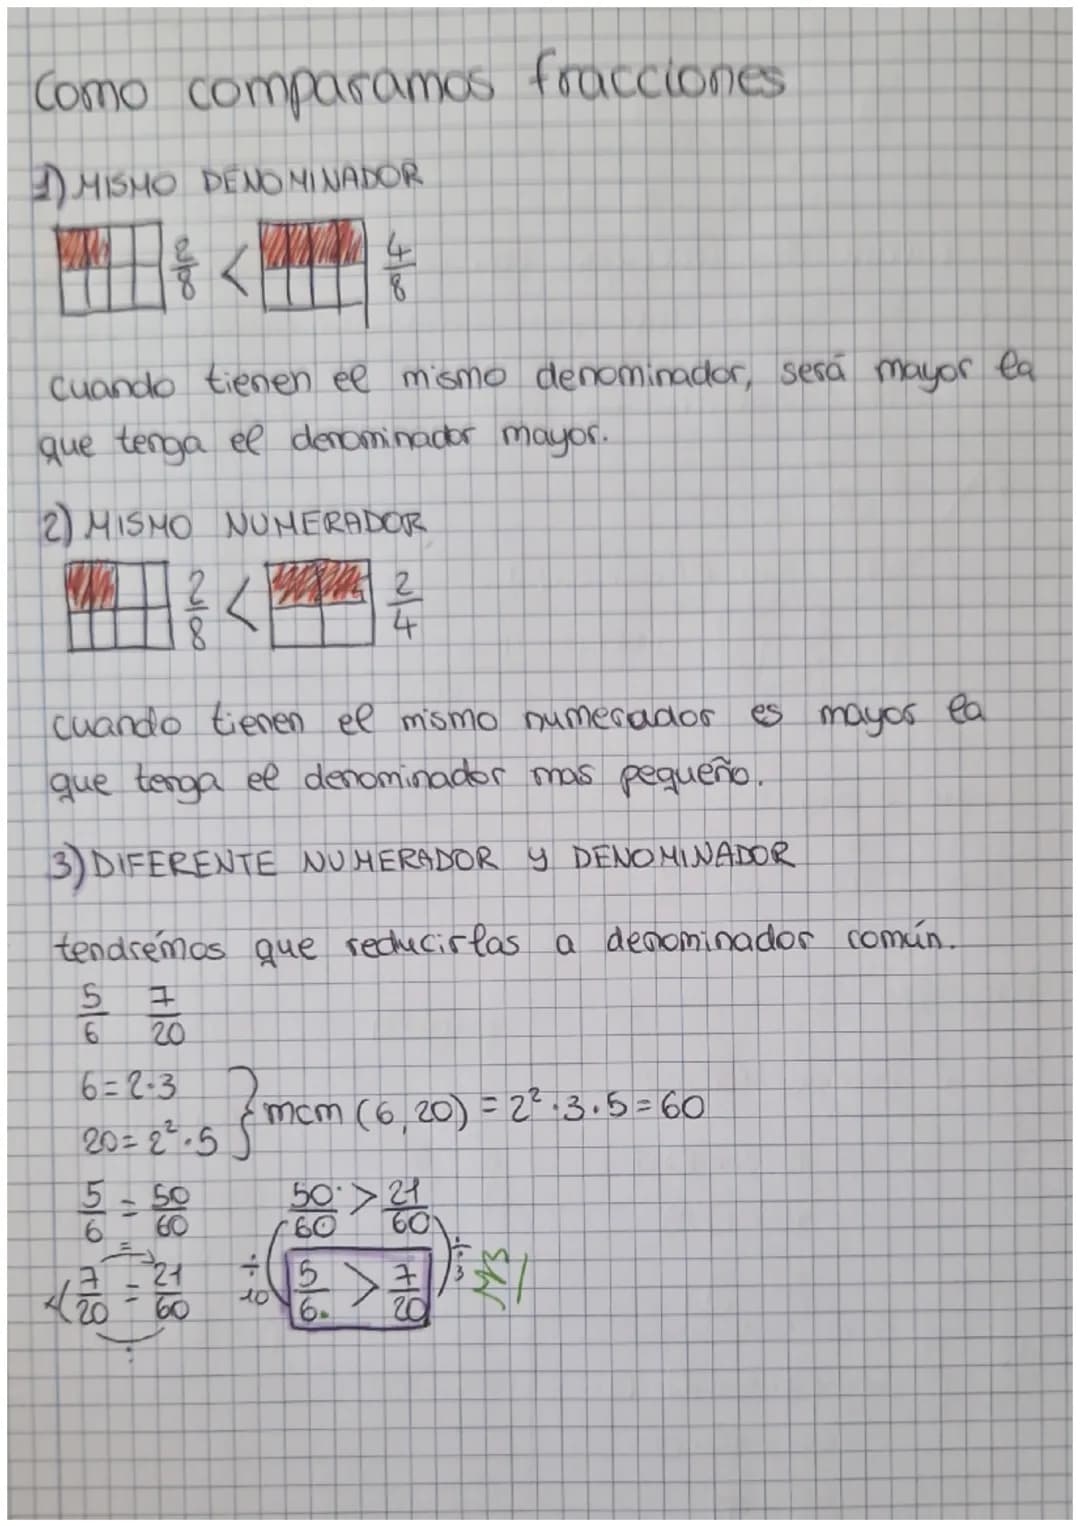 Como comparamos fracciones
1) MISMO DENOMINADOR
2/8 < 4/8
cuando tienen el mismo denominador, será mayor la
que tenga el denominador mayor.
2) MISMO NUMERADOR
2/8 < 2/4
cuando tienen el mismo numerador es mayor la
que tenga el denominador mas pequeño.
3) DIFERENTE NUMERADOR y DENOMINADOR
tendrémos que reducirlas a denominador común.
5/6 7/20
6=2·3
20=2²·5 } mcm (6,20) = 2²·3·5=60
5/6 = 50/60 50/60 > 21/60
7/20 = 21/60 ÷10 5/6 > 7/20 ÷3